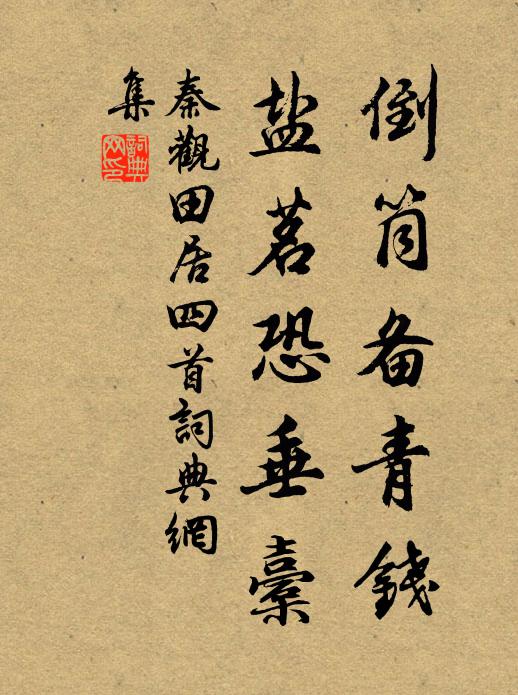 倒筒备青錢
盐茗恐垂橐
秦觀田居四首詞典網
集
詞典網印